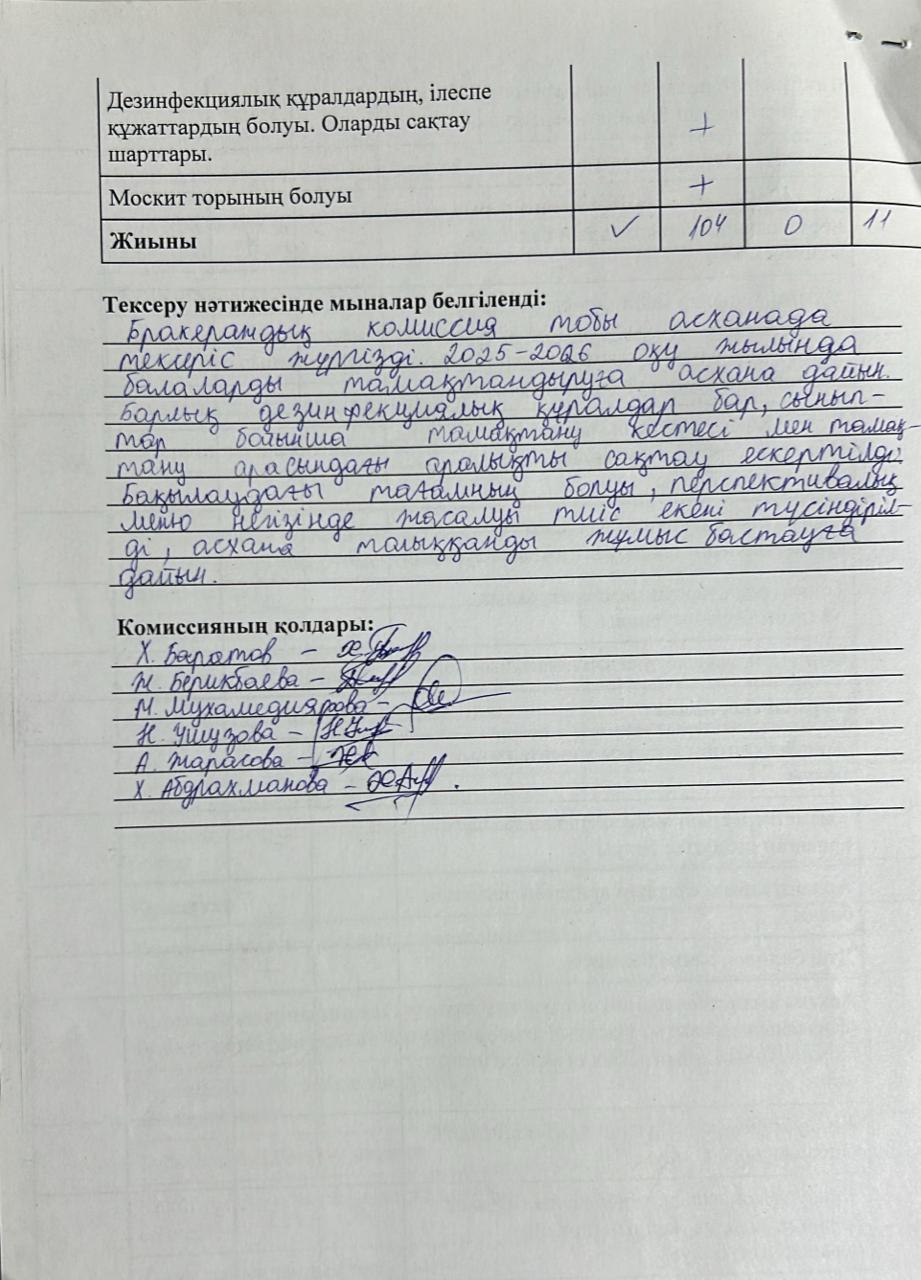 Дезинфекциялық құралдардың, ілеспе
құжаттардың болуы. Оларды сақтау
шарттары.
+
Москит торының болуы +
Жиыны ✓ 104 0 11
Тексеру нәтижесінде мыналар белгіленді:
Бракераждық комиссия тобы асханада
тексеріс жүргізді. 2025-2026 оқу жылында
балаларды тамақтандыруға асхана дайын.
Барлық дезинфекциялық құралдар бар, сынып-
тар бойынша тамақтану кестесі мен тамақ-
тану арасындағы аралықты сақтау ескертілді.
Бақылаудағы тағамның болуы, перспективалық
меню негізінде жасалуы тиіс екені түсіндіріл-
ді, асхана толыққанды жұмыс бастауға
дайын.
Комиссияның қолдары:
Х. Баратов -
Н. Берикбаева -
М. Мухамедиярова -
Н. Ушузова -
А. Жарасова -
Х. Абдрахманова -